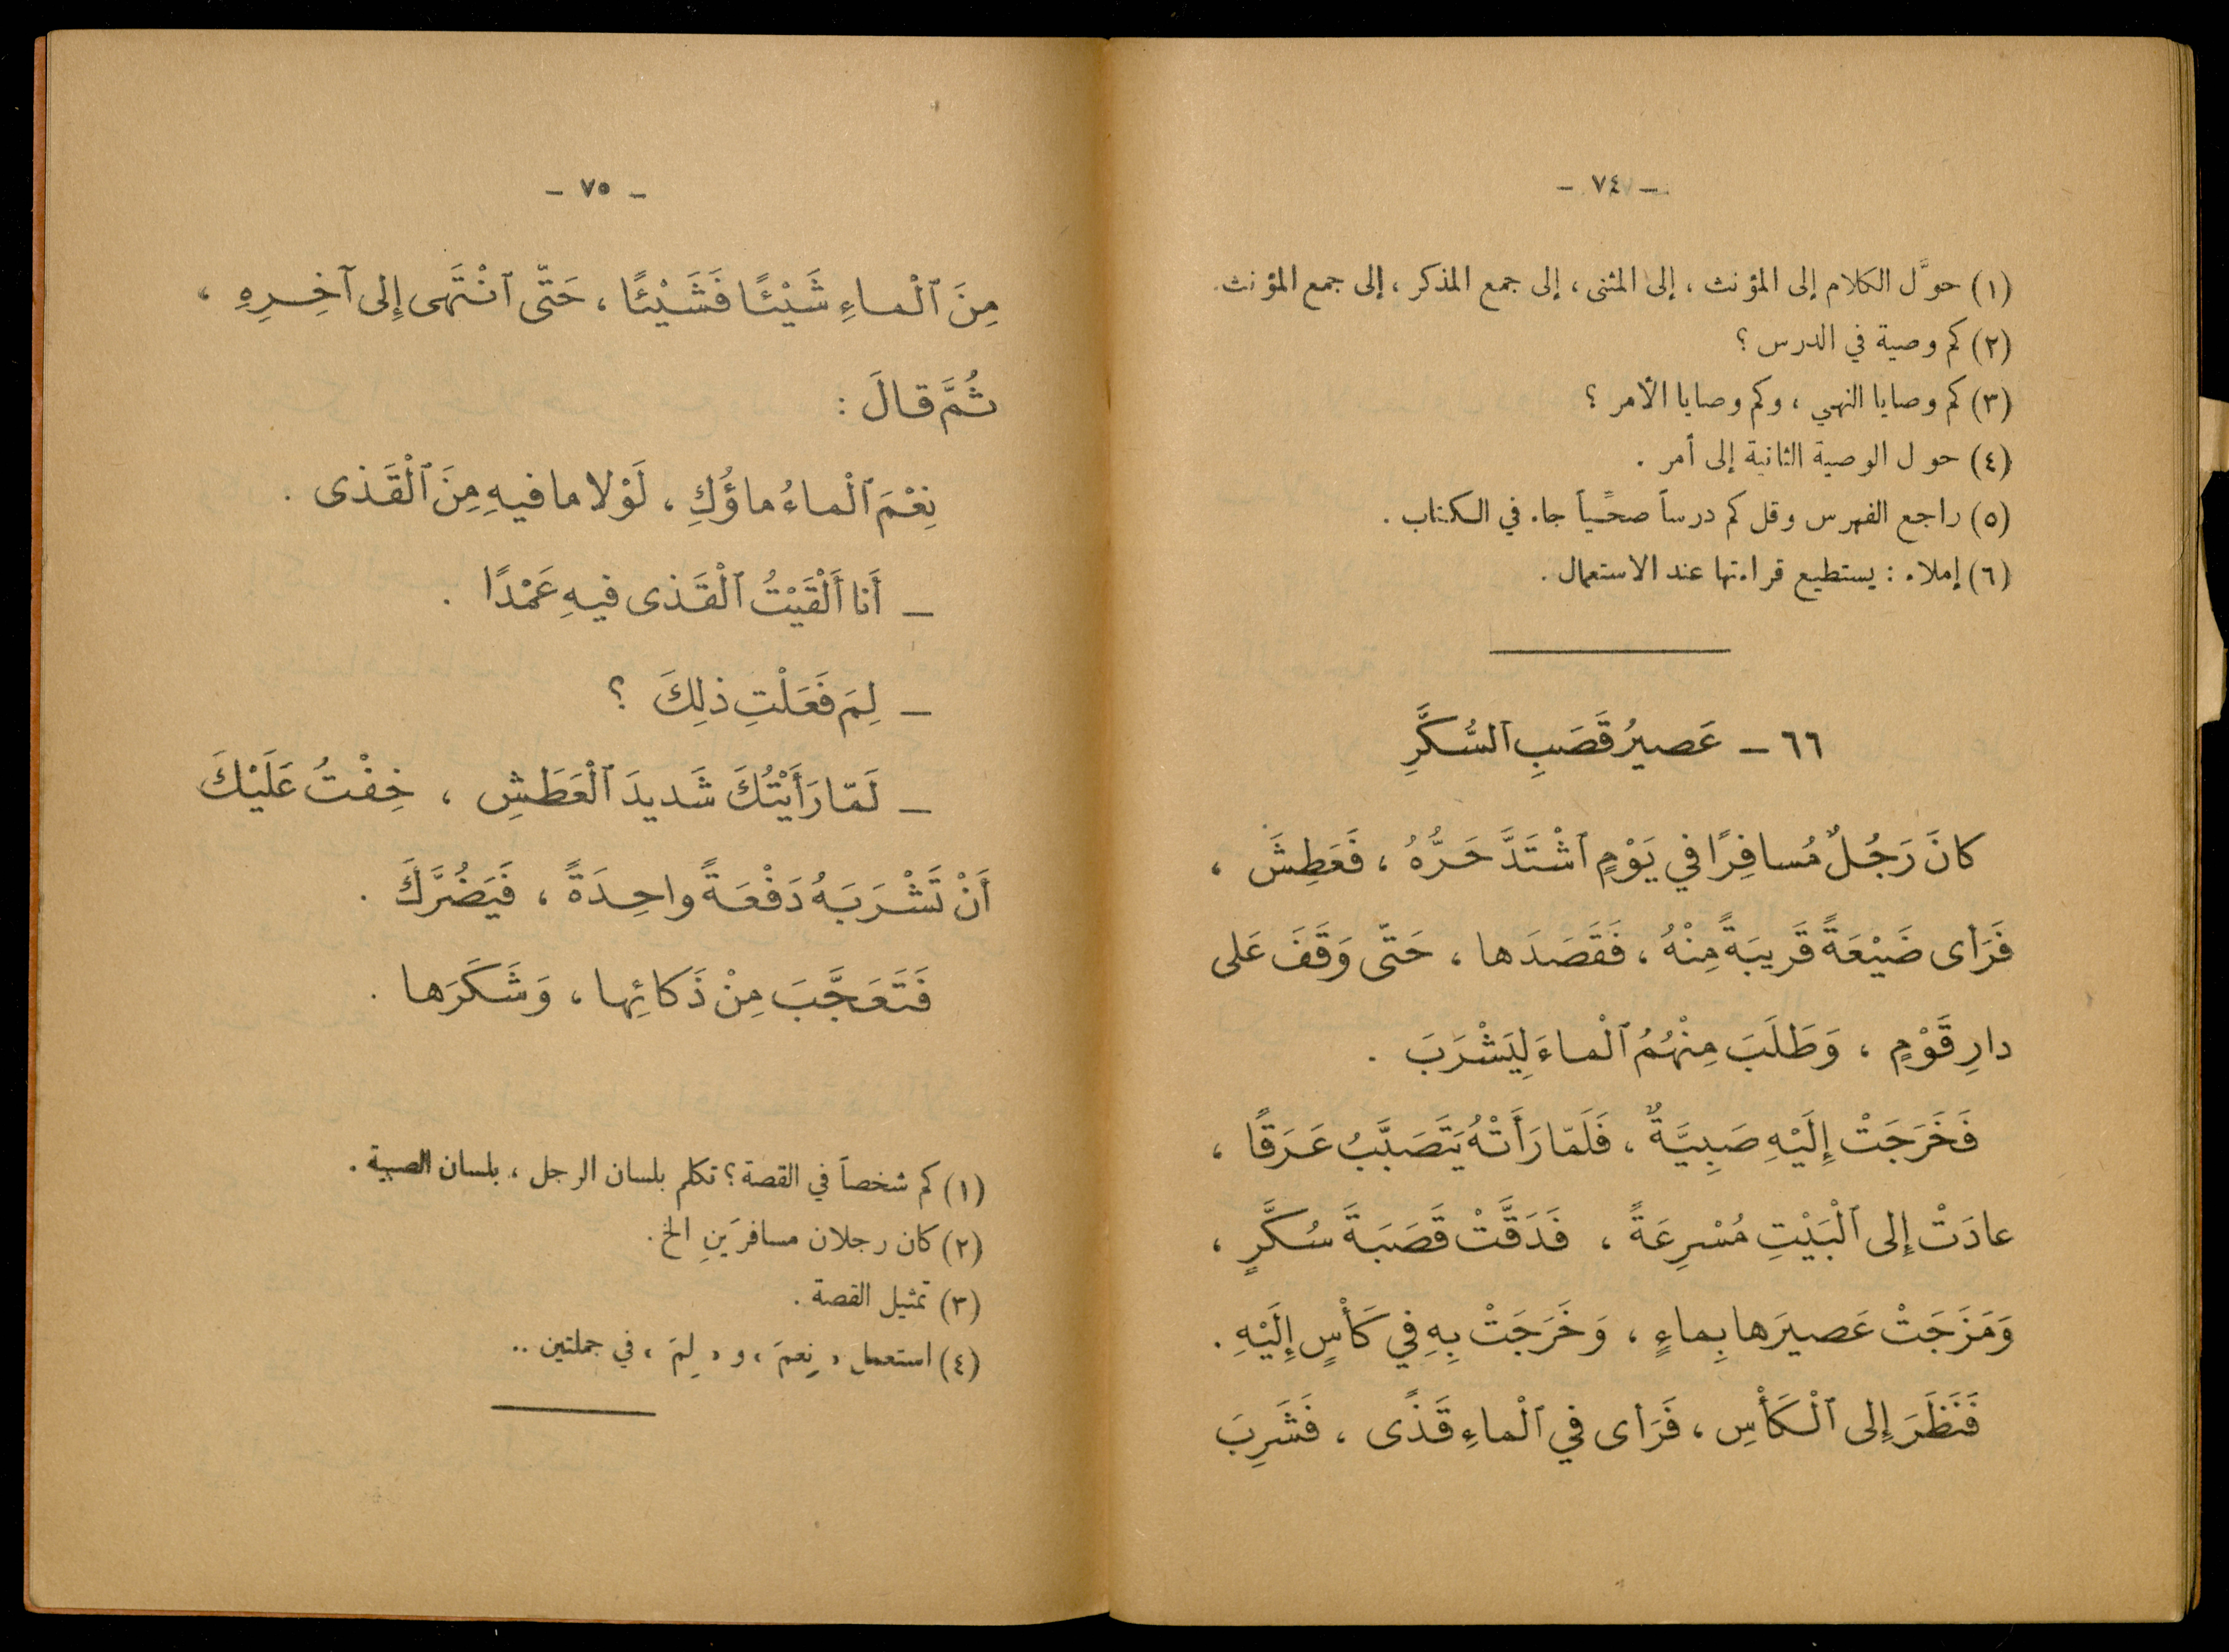 - ٧٤ -
(١) حوَّل الكلام إلى المؤنث ، إلى المثنى ، إلى جمع المذكر ، إلى جمع المؤنث .
(٢) كم وصية في الدرس ؟
(٣) كم وصايا النهي ، وكم وصايا الأمر ؟
(٤) حول الوصية الثانية إلى أمر .
(٥) راجع الفهرس وقل كم درساً صحّياً جاء في الكتاب .
(٦) إملاء : يستطيع قراءتها عند الاستعمال .
٦٦ - عَصيرُ قَصَبِ ٱلسُّكَّرِ
كانَ رَجُلٌ مُسافِرًا في يَوْمٍ ٱشْتَدَّ حَرُّهُ ، فَعَطِشَ ،
فَرَأى ضَيْعَةً قَريبَةً مِنْهُ ، فَقَصَدَها ، حَتّى وَقَفَ عَلى
دارِ قَوْمٍ ، وَطَلَبَ مِنْهُمُ ٱلْماءَ لِيَشْرَبَ .
فَخَرَجَتْ إِلَيْهِ صَبِيَّةٌ ، فَلَمّا رَأَتْهُ يَتَصَبَّبُ عَرَقًا ،
عادَتْ إِلى ٱلْبَيْتِ مُسْرِعَةً ، فَدَقَّتْ قَصَبَةَ سُكَّرٍ ،
وَمَزَجَتْ عَصيرَها بِماءٍ ، وَخَرَجَتْ بِهِ في كَأْسٍ إِلَيْهِ .
فَنَظَرَ إِلى ٱلْكَأْسِ ، فَرَأى في ٱلْماءِ قَذًى ، فَشَرِبَ
- ٧٥ -
مِنَ ٱلْماءِ شَيْئًا فَشَيْئًا ، حَتّى ٱنْتَهى إِلى آخِرِهِ ،
ثُمَّ قالَ :
نِعْمَ ٱلْماءُ ماؤُكِ ، لَوْلا ما فيهِ مِنَ ٱلْقَذى .
- أَنا أَلْقَيْتُ ٱلْقَذى فيهِ عَمْدًا .
- لِمَ فَعَلْتِ ذلِكَ ؟
- لَمّا رَأَيْتُكَ شَديدَ ٱلْعَطَشِ ، خِفْتُ عَلَيْكَ
أَنْ تَشْرَبَهُ دَفْعَةً واحِدَةً ، فَيَضُرَّكَ .
فَتَعَجَّبَ مِنْ ذَكائِها ، وَشَكَرَها .
(١) كم شخصاً في القصة ؟ تكلم بلسان الرجل ، بلسان الصبية .
(٢) كان رجلان مسافرَينِ الخ .
(٣) تمثيل القصة .
(٤) استعمل « نِعمَ » و « لِمَ » في جملتين ..